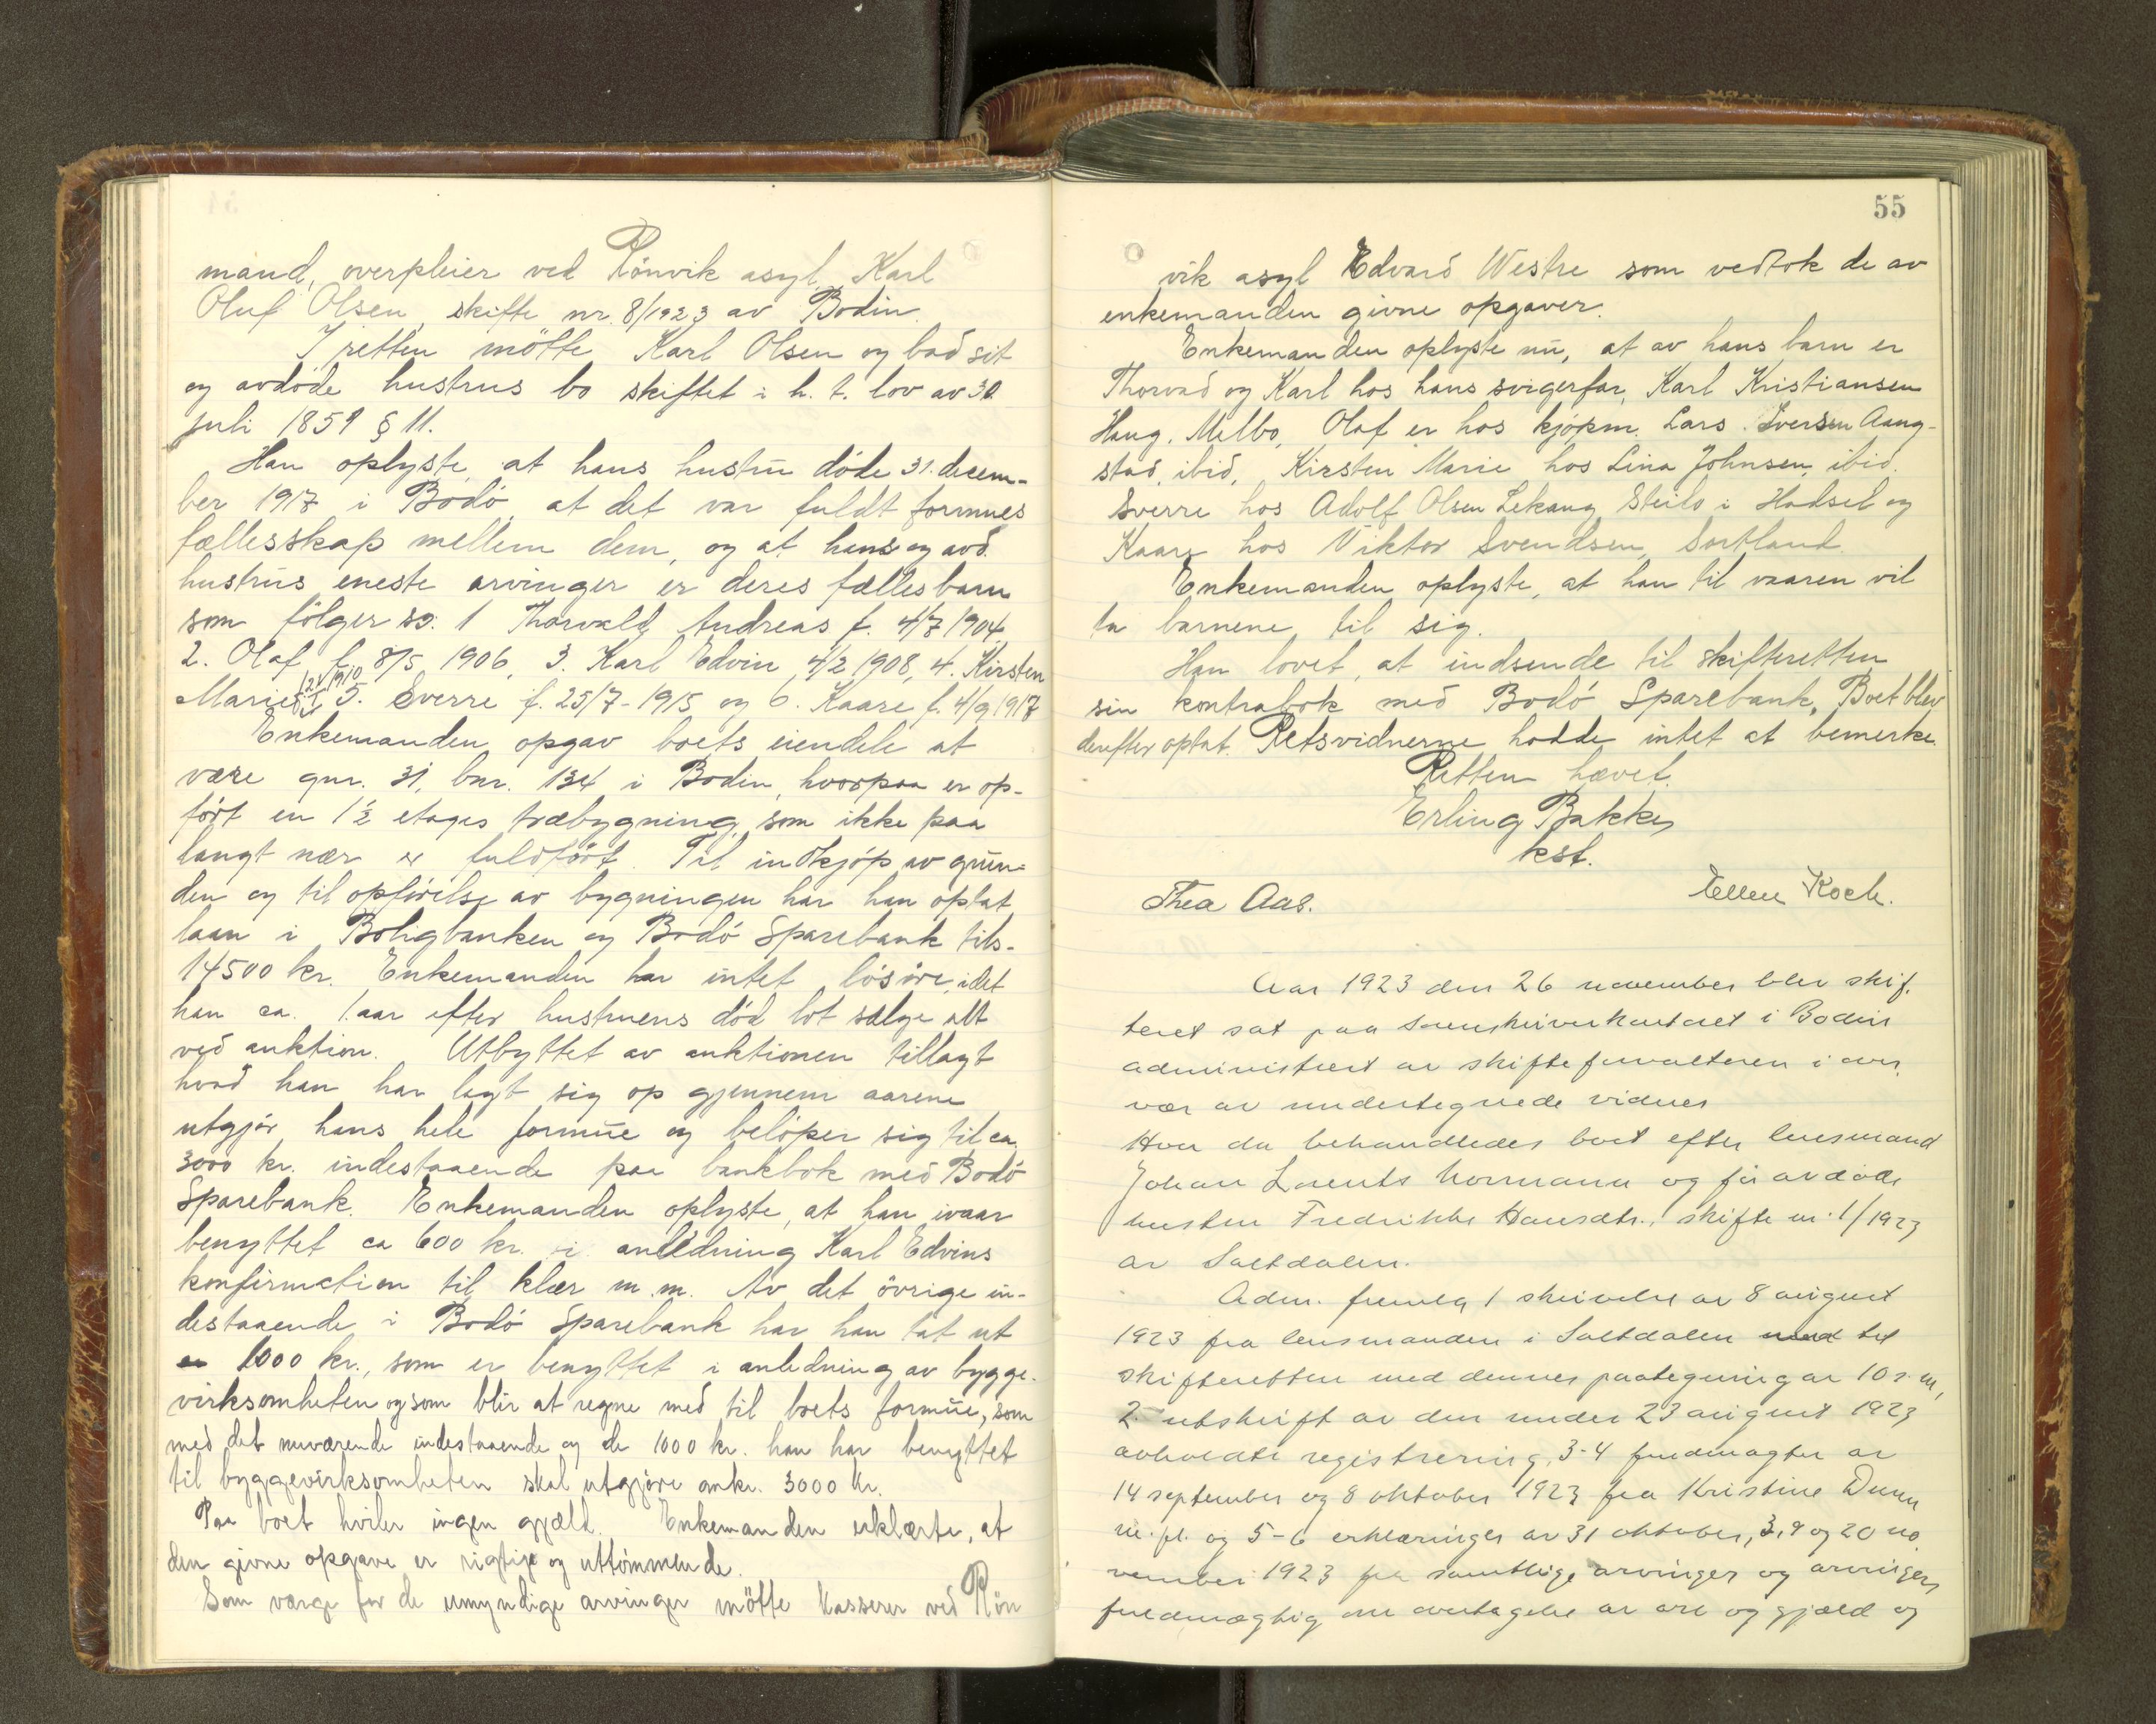 mand, overpleier ved Rönvik asyl, Karl
Oluf Olsen, skifte nr. 8/1923 av Bodin.
I retten mötte Karl Olsen og bad sit
og avdöde hustrus bo skiftet i h. t. lov av 30
juli 1851 § 11.
Han oplyste, at hans hustru döde 31. decem-
ber 1917 i Bodö, at det var fuldt formues
fællesskap mellem dem, og at hans og avd.
hustrus eneste arvinger er deres fællesbarn
som fölger so: 1 Thorvald Andreas f. 4/7 1904
2. Olaf f. 8/5 1906, 3. Karl Edvin 4/2 1908, 4. Kirsten
Marie 5. Sverre f. 25/7-1915 og 6. Kaare f. 4/9 1917
Enkemanden opgav boets eiendele at
være gnr. 31, bnr. 134 i Bodin, hvorpaa er op-
fört en 1½ etages træbygning, som ikke paa
langt nær er fuldfört. Til indkjöp av grun-
den og til opförelse av bygningen har han optat
laan i Boligbanken og Bodö Sparebank tils.
14500 kr. Enkemanden har intet lösöre, idet
han ca. 1 aar efter hustruens död lot sælge alt
ved auktion. Utbyttet av auktionen tillagt
hvad han har lagt sig op gjennem aarene
utgjör hans hele formue og belöper sig til ca.
3000 kr. indestaaende paa bankbok med Bodö
Sparebank. Enkemanden oplyste, at han ivaar
benyttet ca 600 kr. i anledning Karl Edvins
konfirmation til klær m.m. Av det övrige in-
destaaende i Bodö Sparebank har han tat ut
1000 kr., som er benyttet i anledning av bygge-
virksomheten og som blir at regne med til boets formue, som
med det nuværende indestaaende og de 1000 kr. han har benyttet
til byggevirksomheten skal utgjöre omkr. 3000 kr.
Paa boet hviler ingen gjæld. Enkemanden erklærte, at
den givne opgave er rigtige og uttömmende.
Som værge for de umyndige arvinger mötte kasserer ved Rön
55
vik asyl Edvard Westre som vedtok de av
enkemanden givne opgaver.
Enkemanden oplyste nu, at av hans barn er
Thorvad og Karl hos hans svigerfar, Karl Kristiansen
Haug, Melbo, Olaf er hos kjöpm. Lars Iversen Aang-
stad, ibid, Kirsten Marie hos Lina Johnsen, ibid.
Sverre hos Adolf Olsen Lekang Steilo i Hadsel og
Kaare hos Viktor Svendsen, Sortland.
Enkemanden oplyste, at han til vaaren vil
ta barnene til sig.
Han lovet, at indsende til skifteretten
sin kontrabok med Bodö Sparebank, Boet blev
derefter optat. Retsvidnerne hadde intet at bemerke.
Retten hævet.
Erling Bakke
kst.
Thea Aas. Ellen Koch.
Aar 1923 den 26 november blev skif.
teret sat paa sorenskriverkontoret i Bodin
administrert av skifteforvalteren i over.
vær av undertegnede vidner
Hvor da behandledes boet efter lensmand
Johan Lorents Normann og før avdøde
hustru Fredrikke Hansdtr., skifte nr. 1/1923
av Saltdalen.
Adm. fremla 1 skrivelse av 8 august
1923 fra lensmanden i Saltdalen til
skifteretten med dennes paategning av 10 s. m,
2. utskrift av den under 23 august 1923
avholdte registrering, 3-4 fuldmagter av
14 september og 8 oktober 1923 fra Kristine
m. fl. og 5-6 erklæringer av 31 oktober, 3, 9 og 20 no.
vember 1923 fra samtlige arvinger og arvingers
fuldmægtig om overtagelse av arv og gjæld og